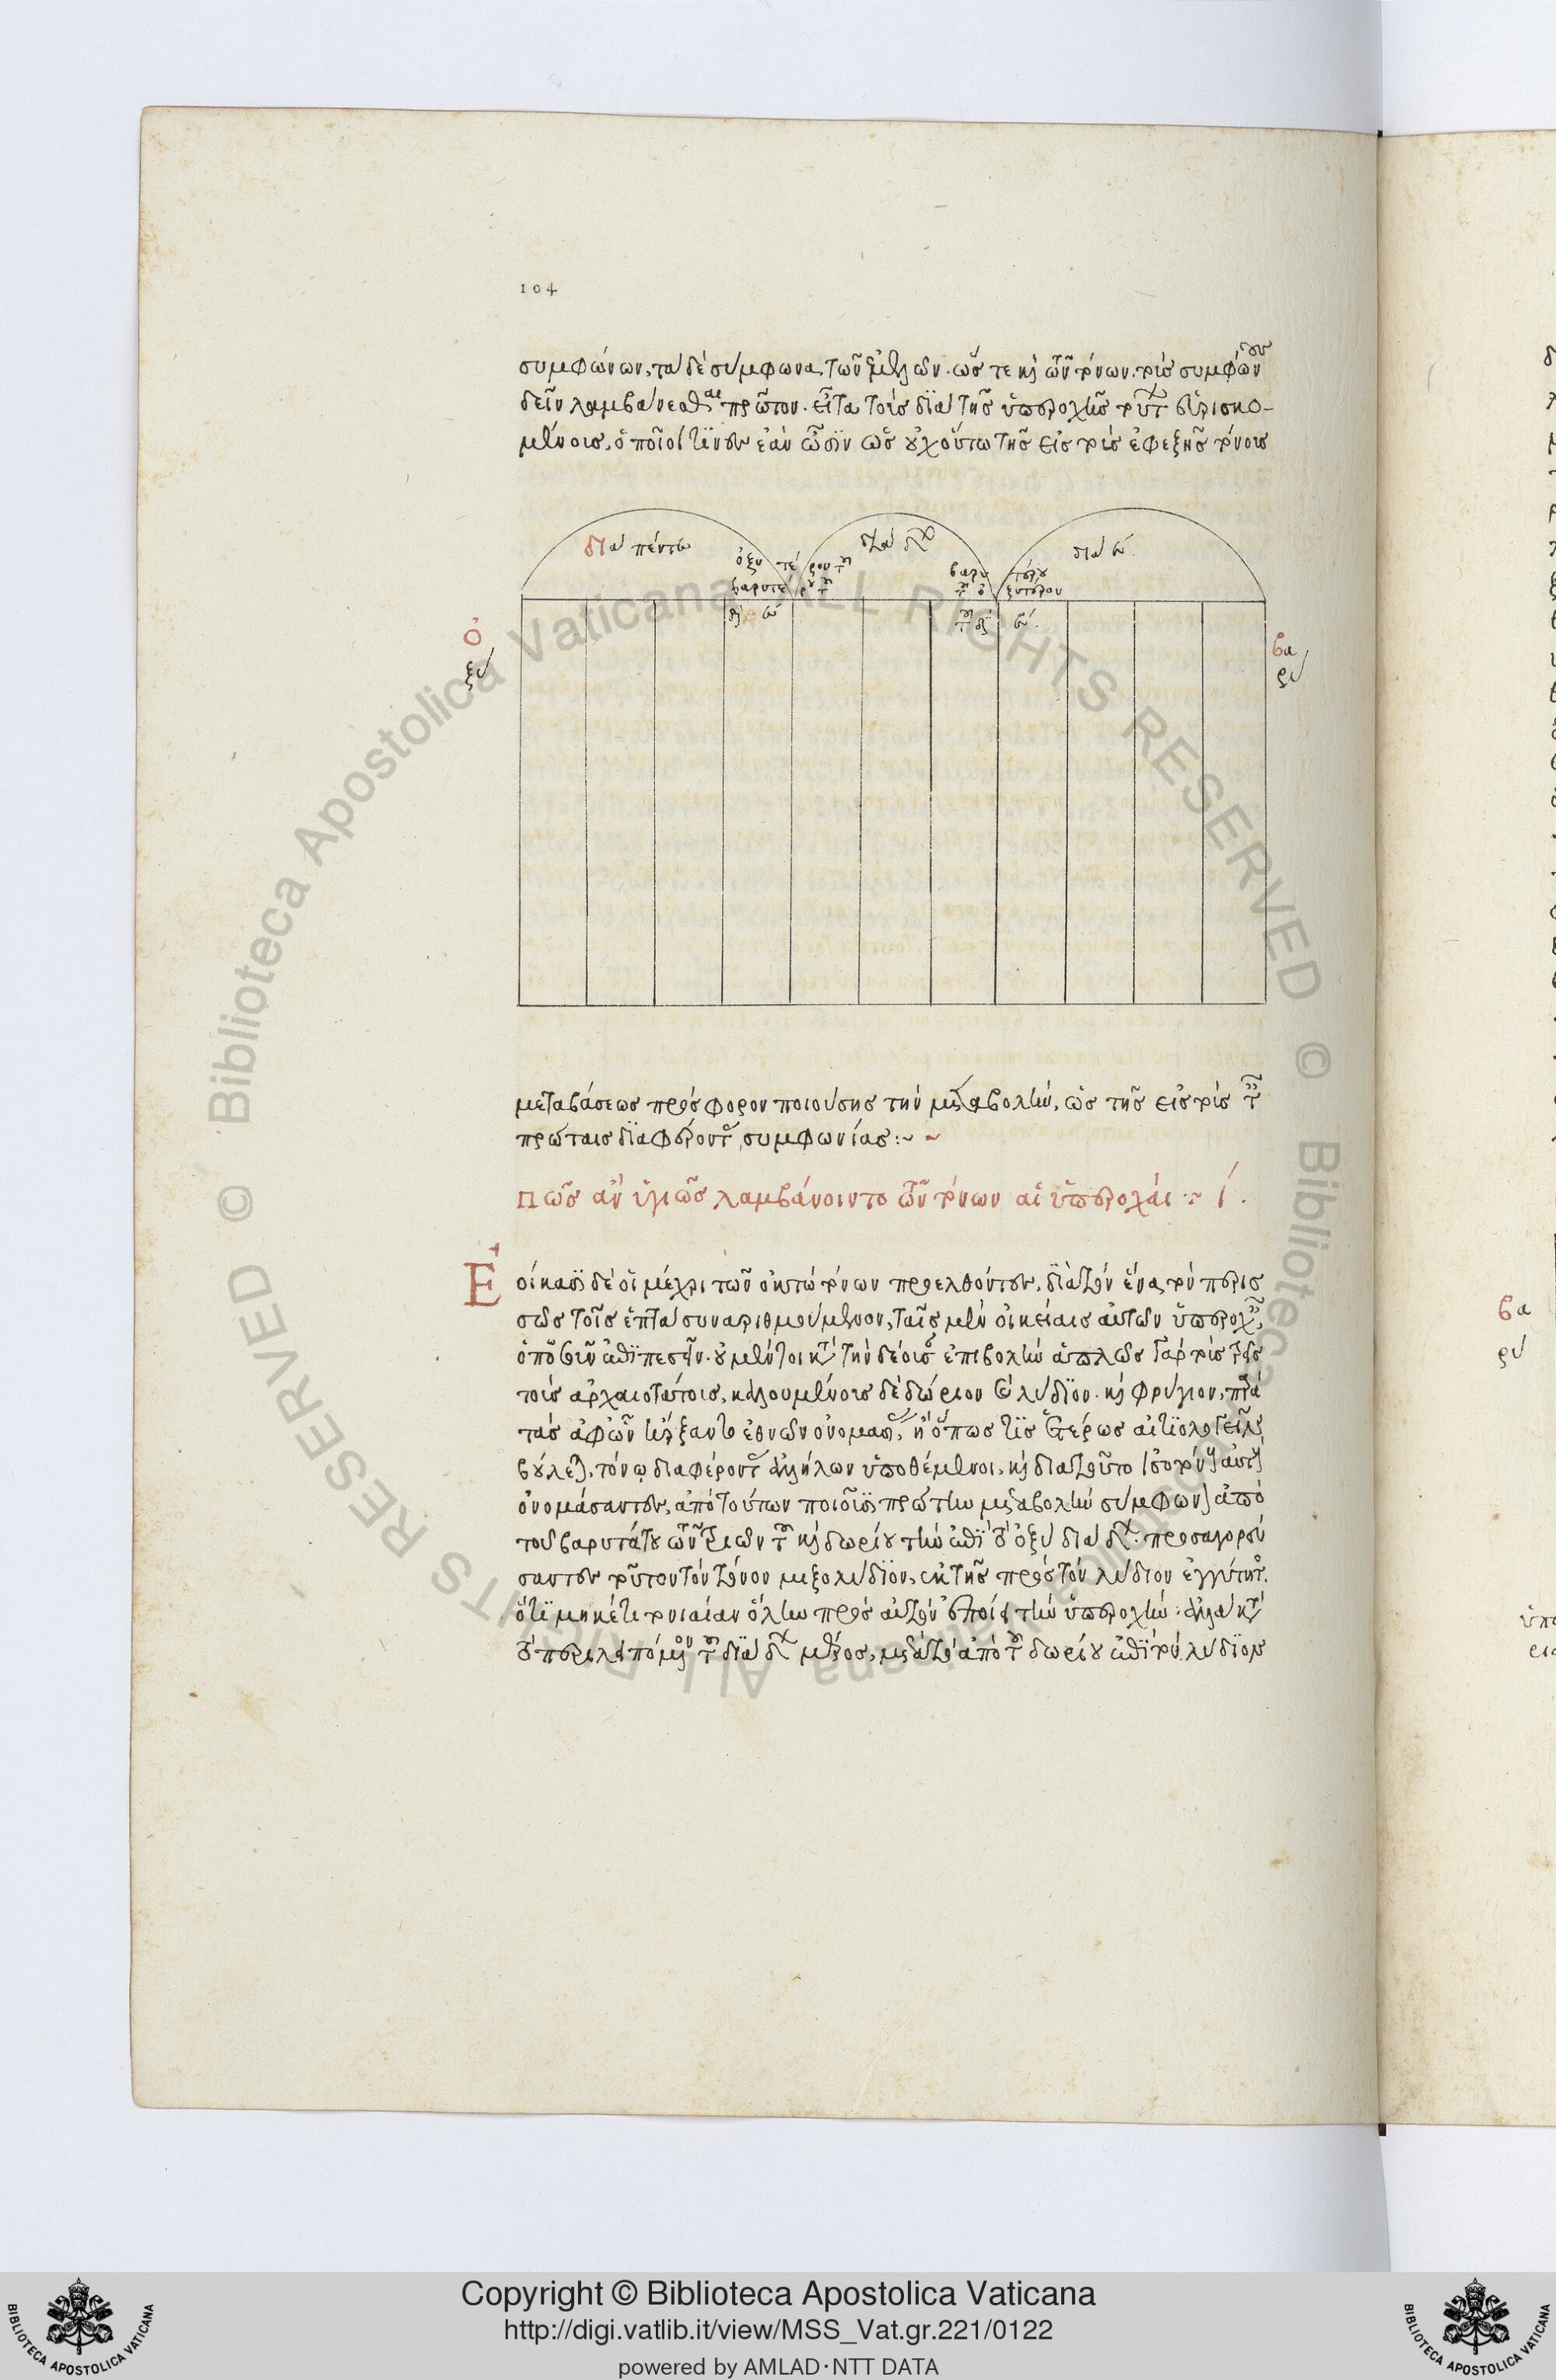 104
συμφώνων, τὰ δὲ σύμφωνα, τῶν ἐμμελῶν. ὥστε καὶ τῶν τόνων τοὺς συμφώνους
δεῖν λαμβάνεσθαι πρῶτον. εἶτα τοὺς διὰ τῆς ὑπεροχῆς τούτων εὑρισκο-
μένους, ὁποῖοί τινες ἐὰν ὦσιν ὡς οὐχ οὕτω τῆς εἰς τοὺς ἐφεξῆς τόνους
διὰ πέντε
διὰ δ
διὰ ε
ὀξυτέρου τοῦ
βαρυτέρου τοῦ
διὰ ε
βαρυτέρου
τοῦ ὀξυτέρου
τοῦ διὰ ε
ὀξύ
βαρύ
μεταβάσεως πρόσφορον ποιούσης τὴν μεταβολὴν, ὡς τῆς εἰς τοὺς ταῖς
πρώταις διαφέροντας συμφωνίας :~ ~
Πῶς ἂν ὑγιῶς λαμβάνοιντο τῶν τόνων αἱ ὑπεροχαί :~ ί.
Ἐοίκασι δὲ οἱ μέχρι τῶν ὀκτὼ τόνων προελθόντες, διὰ τὸν ἕνα τὸν περισ
σῶς τοῖς ἑπτὰ συναριθμούμενον, ταῖς μὲν οἰκείαις αὐτῶν ὑπεροχαῖς,
ὁπωσοῦν ἐπιπεσεῖν. οὐ μέντοι κατὰ τὴν δέουσαν ἐπιβολὴν ἁπλῶς γὰρ τοὺς τρεῖς
τοὺς ἀρχαιοτάτους, καλουμένους δὲ δώριον καὶ λύδιον. καὶ φρύγιον, παρὰ
τὰς ἀφ' ὧν ἤρξαντο ἐθνῶν ὀνομασίας, ἢ ὅπως τις ἑτέρως αἰτιολογεῖν
βούλεται, τόνῳ διαφέροντας ἀλλήλων ὑποθέμενοι, καὶ διὰ τοῦτο ἴσως τόνους αὐτοὺς
ὀνομάσαντες, ἀπὸ τούτων ποιοῦσι πρώτην μεταβολὴν σύμφωνον ἀπὸ
τοῦ βαρυτάτου τῶν τριῶν τοῦ καὶ δωρίου τὴν ἐπὶ τὸ ὀξὺ διὰ δ. προσαγορεύ
σαντες τοῦτον τὸν τόνον μιξολύδιον, ἐκ τῆς πρὸς τὸν λύδιον ἐγγύτητος.
ὅτι μηκέτι τονιαίαν ὅλην πρὸς αὐτὸν ἐποίει τὴν ὑπεροχὴν. ἀλλὰ κατὰ
τὸ περιλειπόμενον τοῦ διὰ δ μέρος, μετὰ τὸ ἀπὸ τοῦ δωρίου ἐπὶ τὸν λύδιον
βα
ρύ
Copyright © Biblioteca Apostolica Vaticana
http://digi.vatlib.it/view/MSS_Vat.gr.221/0122
powered by AMLAD·NTT DATA
BIBLIOTECA APOSTOLICA VATICANA
BIBLIOTECA APOSTOLICA VATICANA
© Biblioteca Apostolica Vaticana ALL RIGHTS RESERVED © Biblioteca Apostolica Vaticana ALL RIGHTS RESERVED